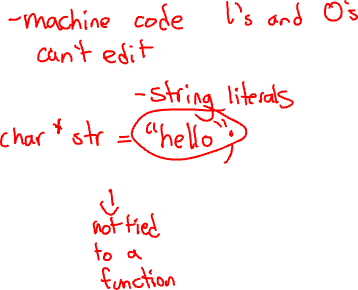 -machine code 1's and 0's
can't edit
-string literals
char* str = "hello";
not tied
to a
function